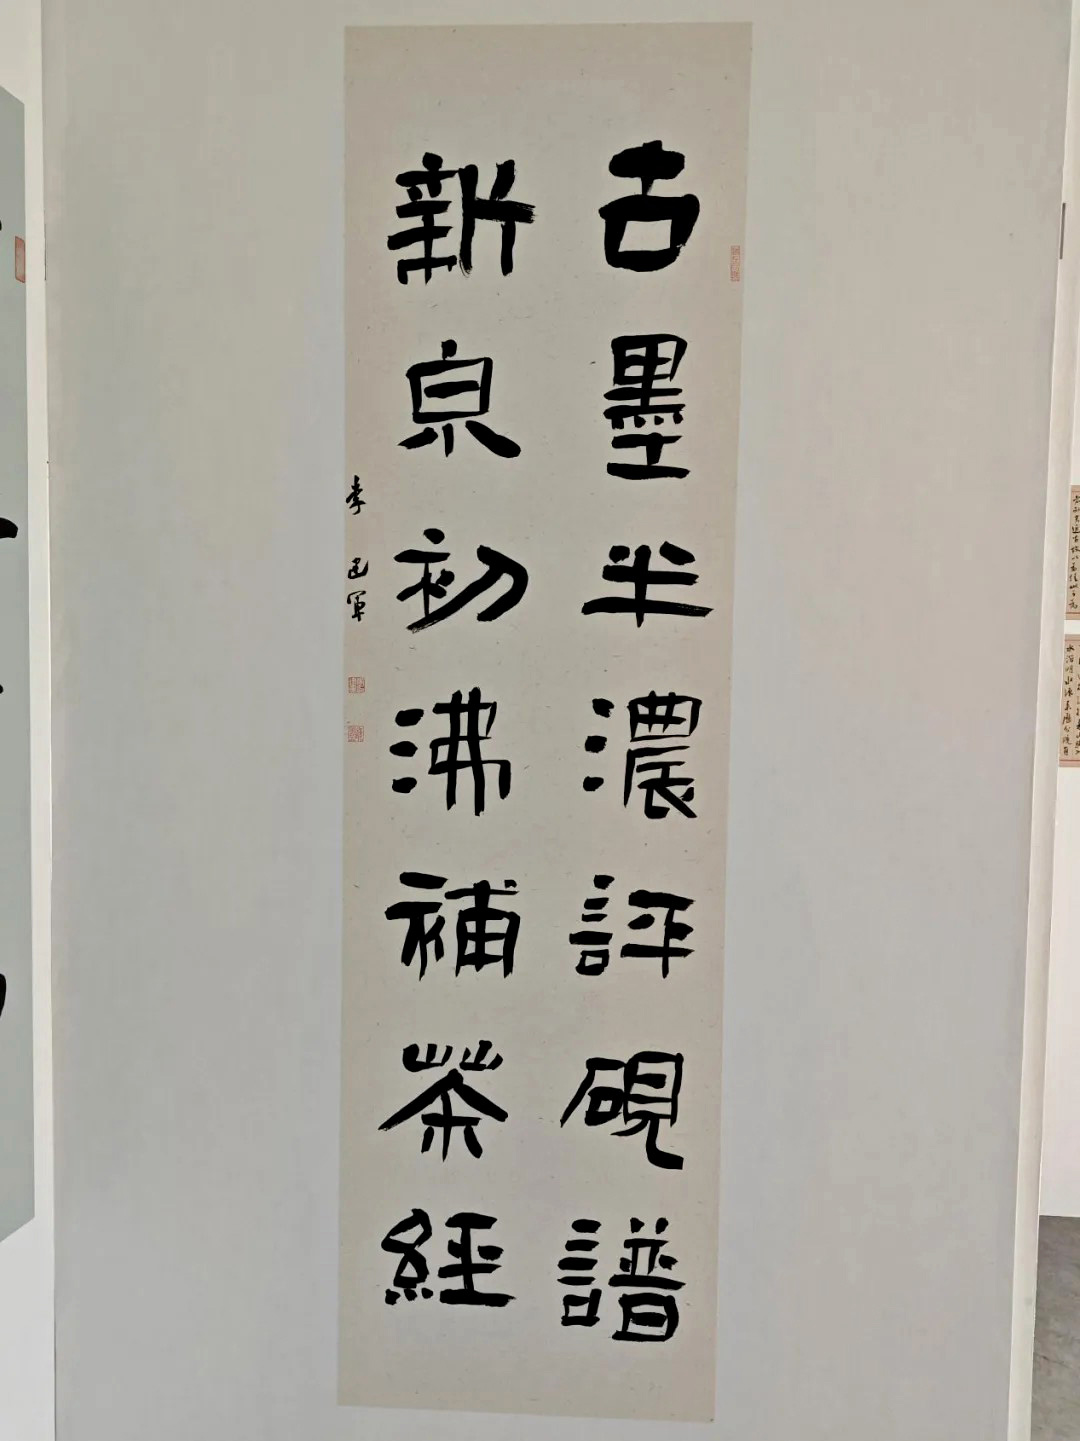 古墨半濃評硯譜
新泉初沸補茶經
李
軍